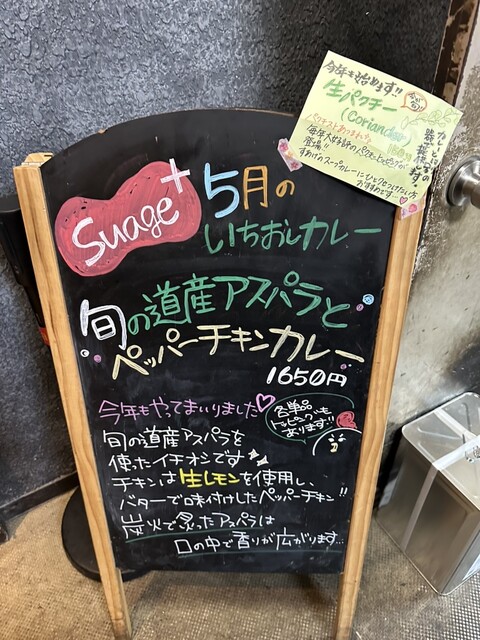 今年も始めます!!
生パクチー
(Coriander)
パクチストあつまれ!!
毎年大好評のパクチートッピングが
登場!!
すあげのスープカレーにひとクセつけたい方
おすすめです…
Suage+
5月の
いちおしカレー
旬の道産アスパラと
ペッパーチキンカレー
1650円
今年もやってまいりました♡
各単品
トッピングも
あります!!
旬の道産アスパラを
使ったイチオシです
チキンは生レモンを使用し、
バターで味付けしたペッパーチキン!!
炭火で炙ったアスパラは
口の中で香りが広がります…